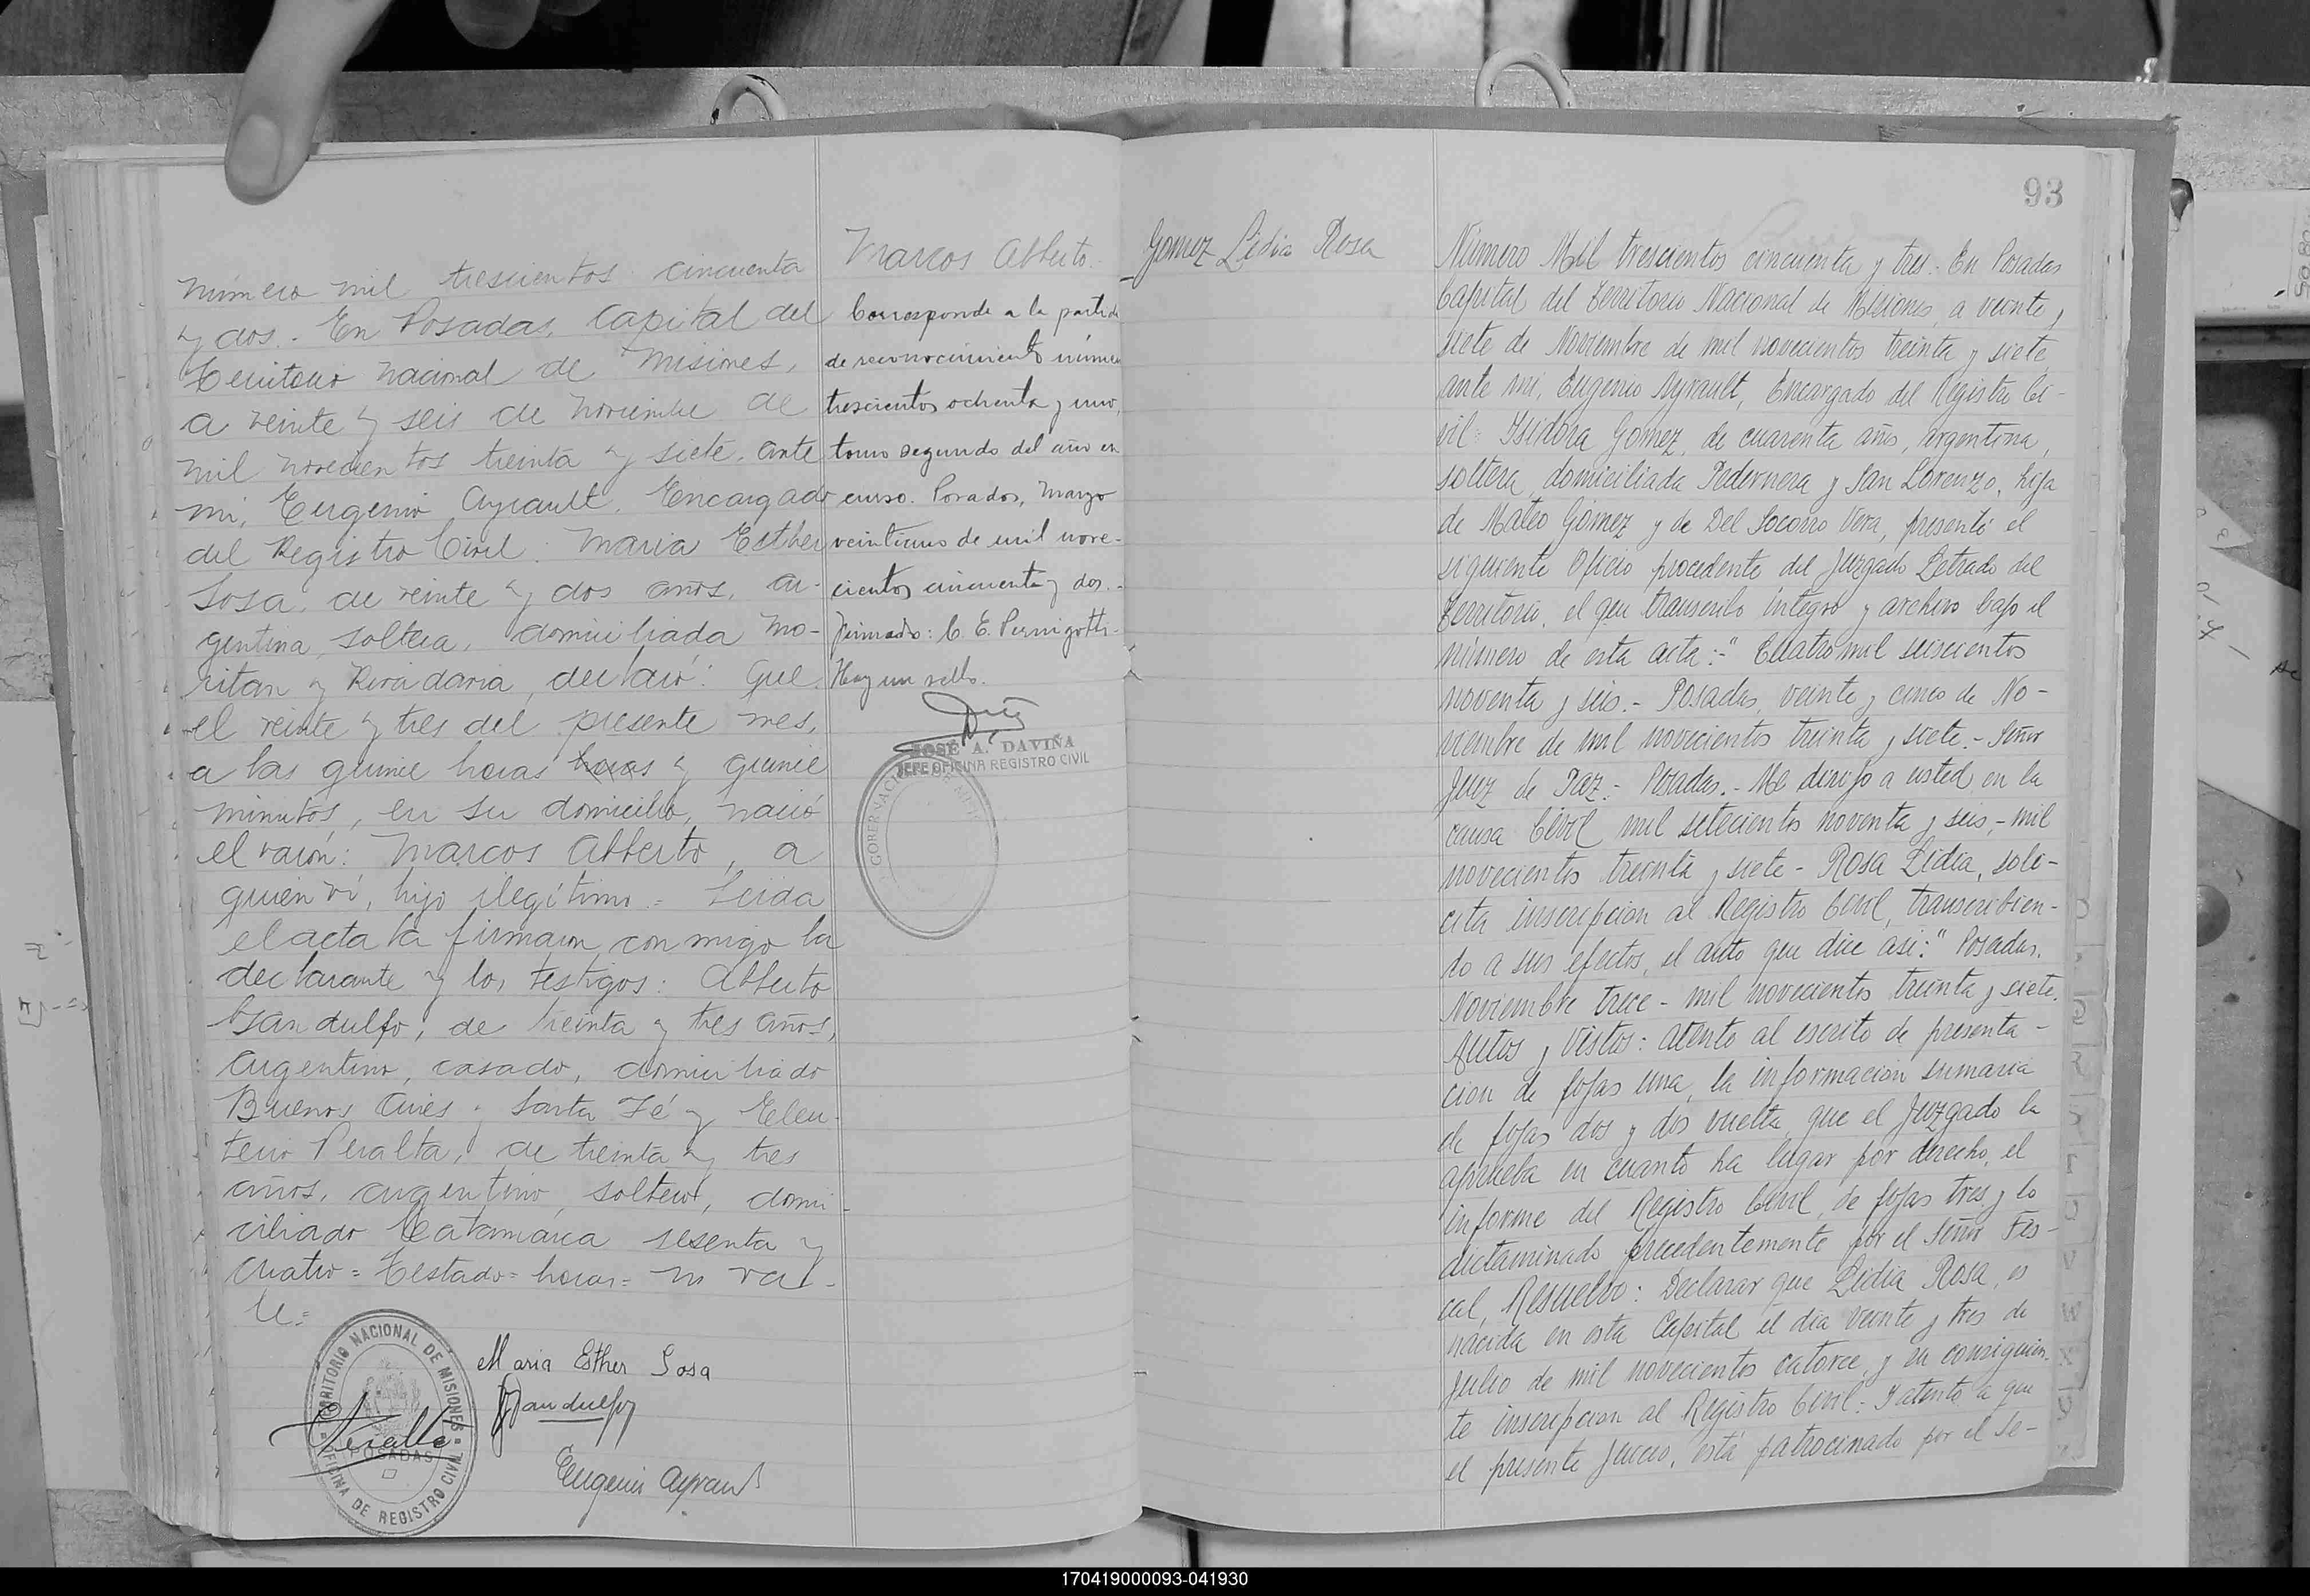 Número mil trescientos cincuenta
y dos.- En Posadas, Capital del
Territorio Nacional de Misiones,
a veinte y seis de Noviembre de
mil novecientos treinta y siete, ante
mi, Eugenio Ayrault, Encargado
del Registro Civil: Maria Esther
Sosa, de veinte y dos años, ar-
gentina, soltera, domiciliada Mo-
ritan y Rivadavia, declaró: Que
el veinte y tres del presente mes,
a las quince horas horas y quince
minutos, en su domicilio, nació
el varón: Marcos Alberto, a
quien ví, hijo ilegítimo.= Leida
el acta la firmaron conmigo la
declarante y los testigos: Alberto
Gandulfo, de treinta y tres años,
argentino, casado, domiciliado
Buenos Aires y Santa Fé y Eleu-
terio Peralta, de treinta y tres
años, argentino, soltero, domi-
ciliado Catamarca sesenta y
cuatro= Testado= horas= no va-
le=
Maria Esther Sosa
Gandulfo
Peralta
Eugenio Ayrault
TERRITORIO NACIONAL DE MISIONES
POSADAS
OFICINA DE REGISTRO CIVIL
Marcos Alberto.
Corresponde a la partida
de reconocimiento número
trescientos ochenta y uno,
tomo segundo del año en
curso. Posadas, Marzo
veintiuno de mil nove-
cientos cincuenta y dos.-
Firmado: C. E. Pernigotti.-
Hay un sello.
JOSÉ A. DAVIÑA
JEFE OFICINA REGISTRO CIVIL
GOBERNACION
Gomez Lidia Rosa
93
Número Mil trescientos cincuenta y tres.- En Posadas
Capital del Territorio Nacional de Misiones, a veinte y
siete de Noviembre de mil novecientos treinta y siete,
ante mi, Eugenio Ayrault, Encargado del Registro Ci-
vil: Isidora Gomez, de cuarenta años, argentina,
soltera, domiciliada Pedernera y San Lorenzo, hija
de Mateo Gomez y de Del Socorro Vera, presentó el
siguiente Oficio procedente del Juzgado Letrado del
Territorio, el que transcribo integro y archivo bajo el
número de esta acta:-" Cuatro mil seiscientos
noventa y seis.- Posadas, veinte y cinco de No-
viembre de mil novecientos treinta y siete.- Señor
Juez de Paz.- Posadas.- Me dirijo a usted en la
causa Civil mil setecientos noventa y seis,- mil
novecientos treinta y siete - Rosa Lidia, soli-
cita inscripcion al Registro Civil, transcribien-
do a sus efectos, el auto que dice asi:" Posadas,
Noviembre trece - mil novecientos treinta y siete.
Autos y Vistos: Atento al escrito de presenta-
cion de fojas una, la informacion sumaria
de fojas dos y dos vuelta, que el Juzgado la
aprueba en cuanto ha lugar por derecho, el
informe del Registro Civil, de fojas tres y lo
dictaminado precedentemente por el Señor Fis-
cal, Resuelvo: Declarar que Lidia Rosa, es
nacida en esta Capital el dia veinte y tres de
Julio de mil novecientos catorce, y en consiguien-
te inscripcion al Registro Civil: Y atento a que
el presente juicio, está patrocinado por el Se-
170419000093-041930